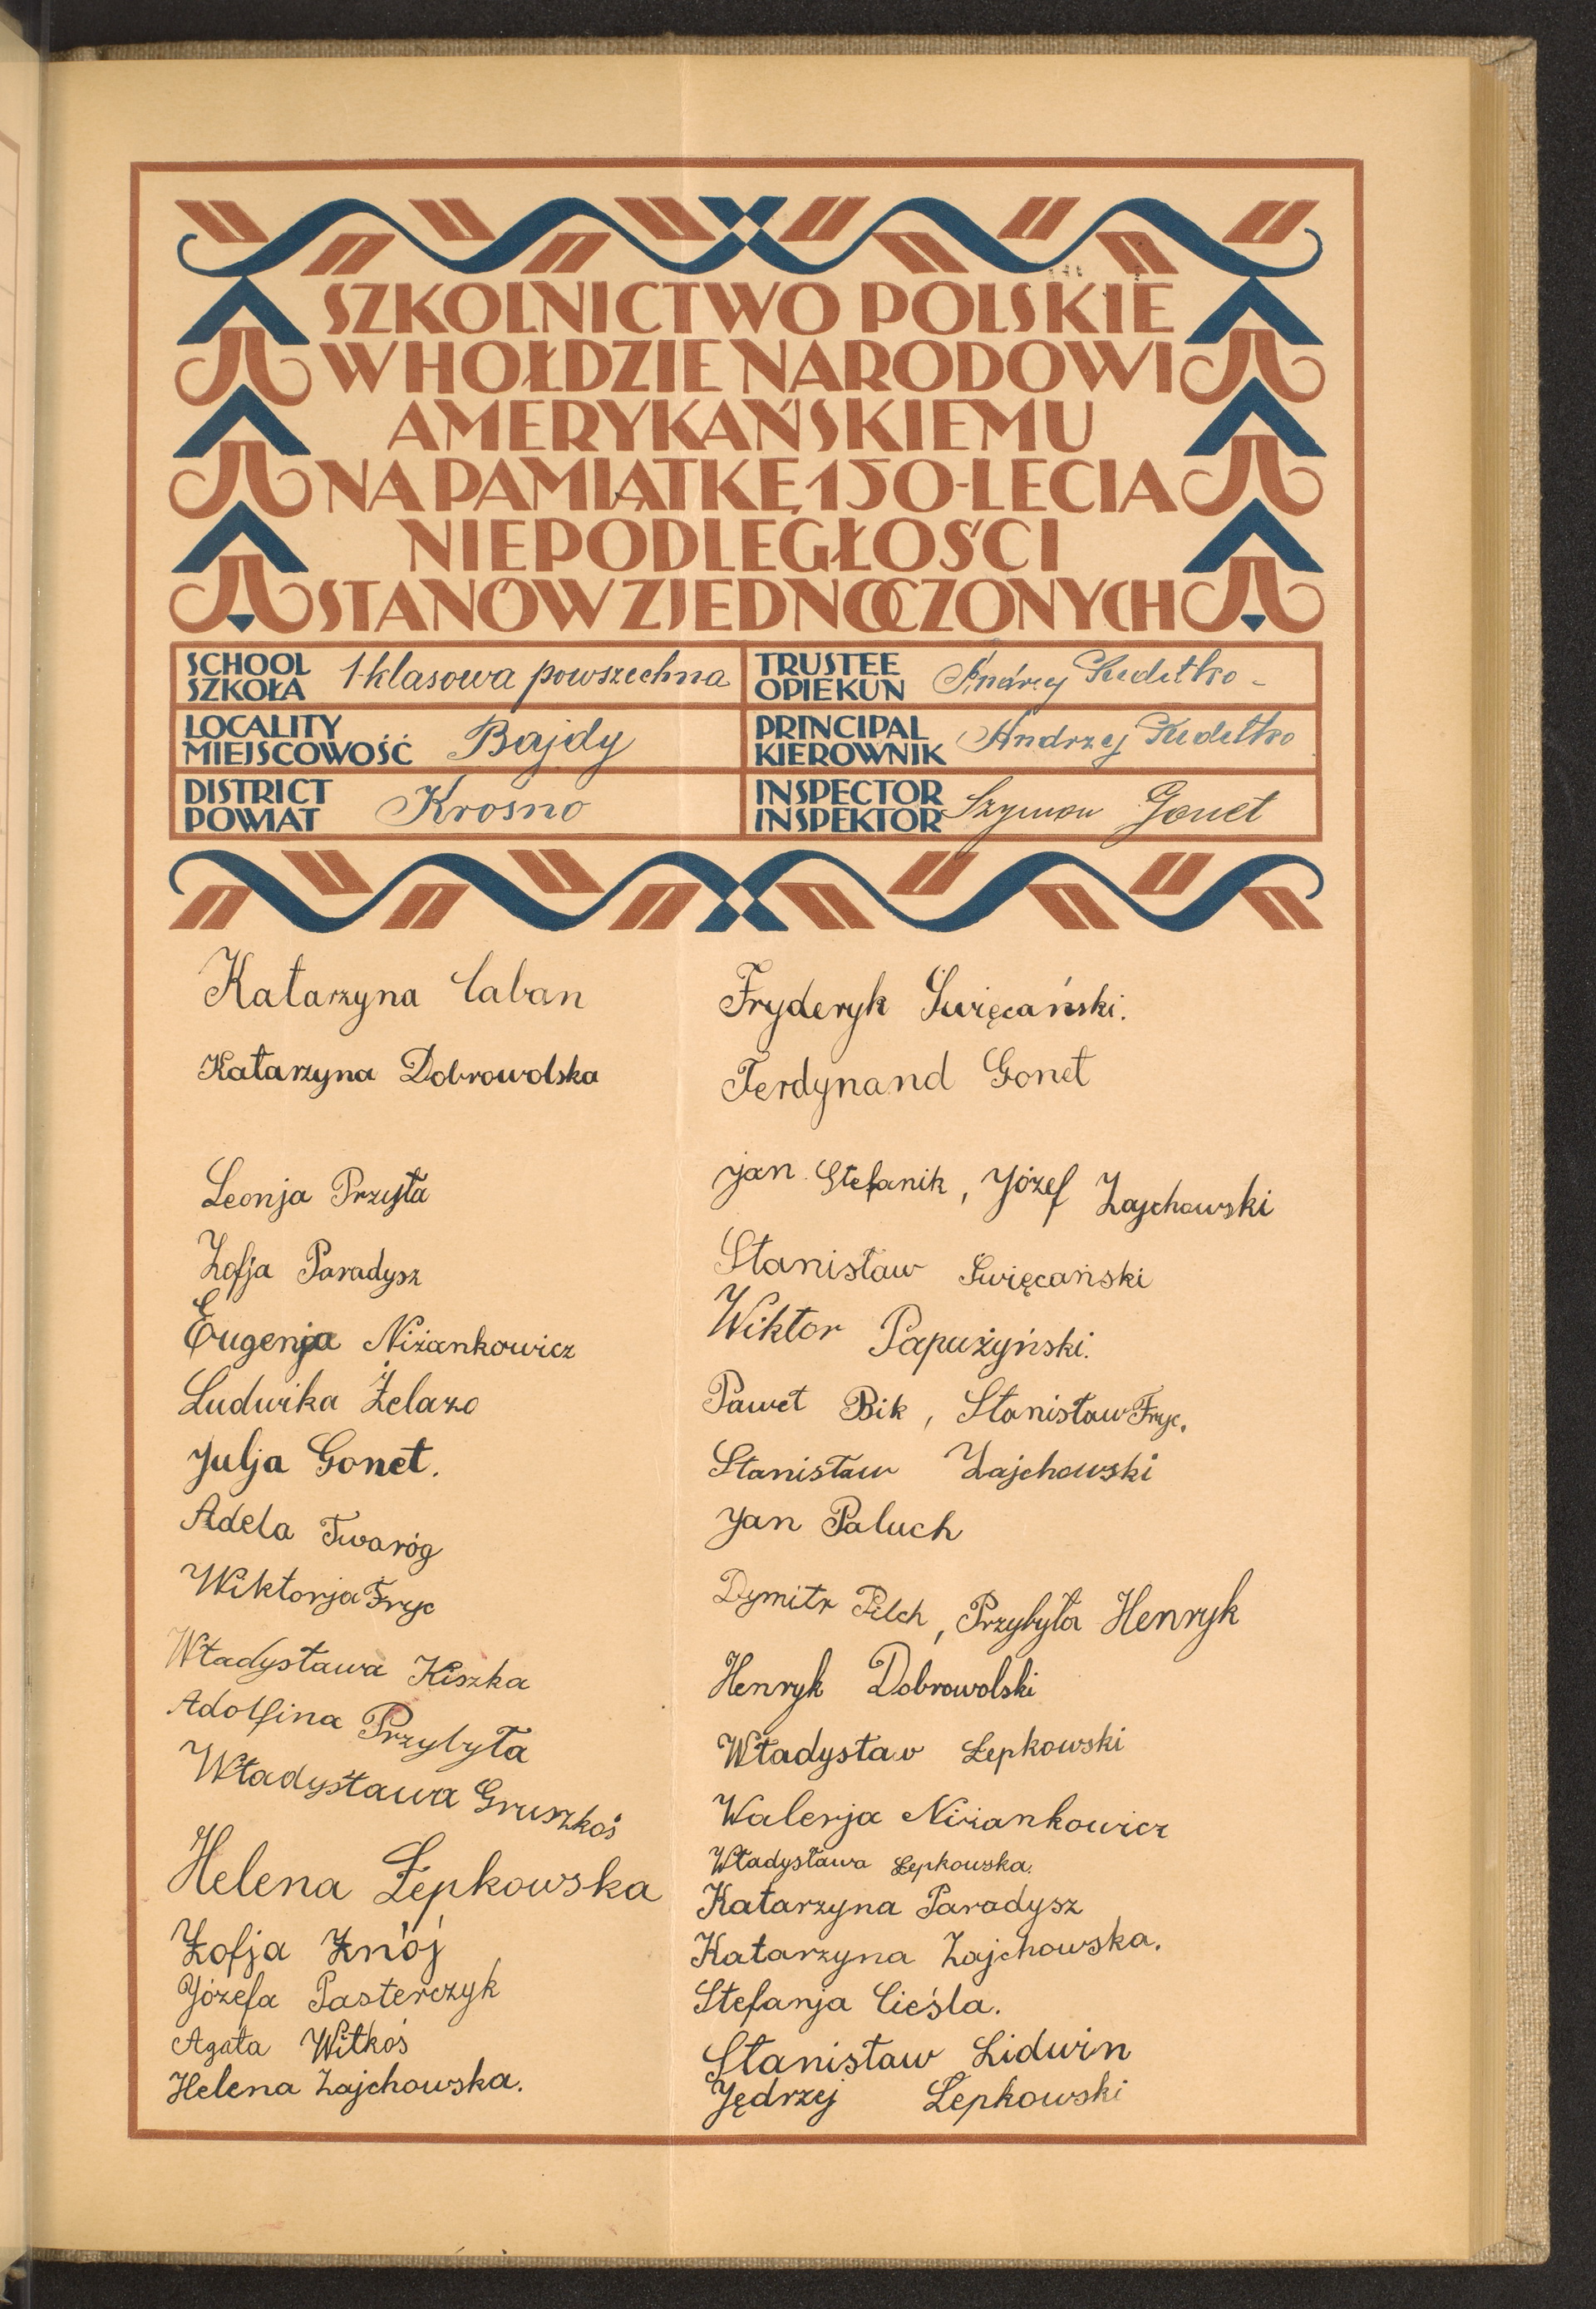 SZKOLNICTWO POLSKIE
W HOŁDZIE NARODOWI
AMERYKAŃSKIEMU
NA PAMIĄTKĘ 150-LECIA
NIEPODLEGŁOŚCI
STANÓW ZJEDNOCZONYCH
SCHOOL
SZKOŁA
1-klasowa powszechna
TRUSTEE
OPIEKUN
Andrzej
LOCALITY
MIEJSCOWOŚĆ
Bajdy
PRINCIPAL
KIEROWNIK
Andrzej
DISTRICT
POWIAT
Krosno
INSPECTOR
INSPEKTOR
Szymon Gonet
Katarzyna Caban
Katarzyna Dobrowolska
Leonja
Zofja Paradysz
Eugenja Niżankowicz
Ludwika Żelazo
Julja Gonet.
Adela Twaróg
Wiktorja Fryc
Władysława Kiszka
Adolfina Przybyła
Władysława Gruszkoś
Helena Łepkowska
Zofja Znój
Józefa Pasterczyk
Agata Witkoś
Helena Zajchowska.
Fryderyk Święcański.
Ferdynand Gonet
Jan Stefanik, Józef Zajchowski
Stanisław Święcański
Wiktor Papużyński.
Paweł Bik, Stanisław Fryc.
Stanisław Zajchowski
Jan Paluch
Dymitr Pilch, Przybyła Henryk
Henryk Dobrowolski
Władysław Łepkowski
Walerja Niżankowicz
Władysława Łepkowska.
Katarzyna Paradysz
Katarzyna Zajchowska.
Stefanja Cieśla.
Stanisław Lidwin
Jędrzej Łepkowski